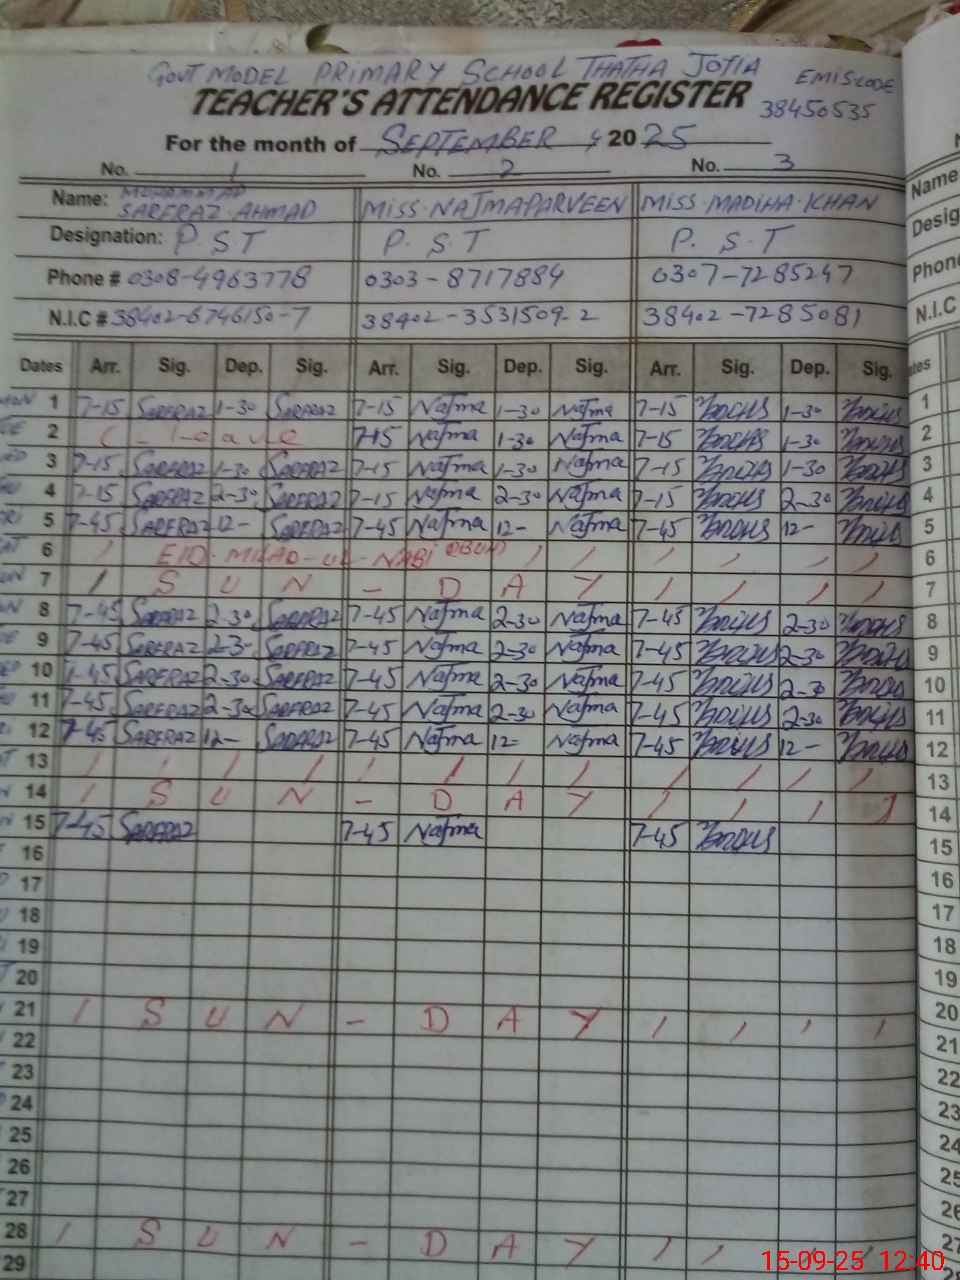 GOVT MODEL PRIMARY SCHOOL THATHA JOTIA EMIS CODE
TEACHER'S ATTENDANCE REGISTER 38450535
For the month of SEPTEMBER 2025
No. 1 No. 2 No. 3
Name: MUHAMMAD SARFRAZ AHMAD MISS. NAJMA PARVEEN MISS. MADIHA KHAN
Designation: P. S T P. S. T P. S. T
Phone # 0308-4963778 0303-8717884 0307-7285247
N.I.C # 38402-6746150-7 38402-3531509-2 38402-7285081
Dates Arr. Sig. Dep. Sig. Arr. Sig. Dep. Sig. Arr. Sig. Dep. Sig.
1 7-15 SARFRAZ 1-30 SARFRAZ 7-15 Najma 1-30 Najma 7-15 1-30
2 C-leave 7-15 Najma 1-30 Najma 7-15 1-30
3 7-15 SARFRAZ 1-30 SARFRAZ 7-15 Najma 1-30 Najma 7-15 1-30
4 7-15 SARFRAZ 2-30 SARFRAZ 7-15 Najma 2-30 Najma 7-15 2-30
5 7-45 SARFRAZ 12- SARFRAZ 7-45 Najma 12- Najma 7-45 12-
6 EID-MILAD-UL-NABI (PBUH)
7 S U N - D A Y
8 7-45 SARFRAZ 2-30 SARFRAZ 7-45 Najma 2-30 Najma 7-45 2-30
9 7-45 SARFRAZ 2-3- SARFRAZ 7-45 Najma 2-30 Najma 7-45 2-30
10 7-45 SARFRAZ 2-30 SARFRAZ 7-45 Najma 2-30 Najma 7-45 2-30
11 7-45 SARFRAZ 2-30 SARFRAZ 7-45 Najma 2-30 Najma 7-45 2-30
12 7-45 SARFRAZ 12- SARFRAZ 7-45 Najma 12- Najma 7-45 12-
13
14 S U N - D A Y
15 7-45 SARFRAZ 7-45 Najma 7-45
16
17
18
19
20
21 S U N - D A Y
22
23
24
25
26
27
28 S U N - D A Y
29
Name
Desig
Phon
N.I.C
1
2
3
4
5
6
7
8
9
10
11
12
13
14
15
16
17
18
19
20
21
22
23
24
25
26
27
15-09-25 12:40